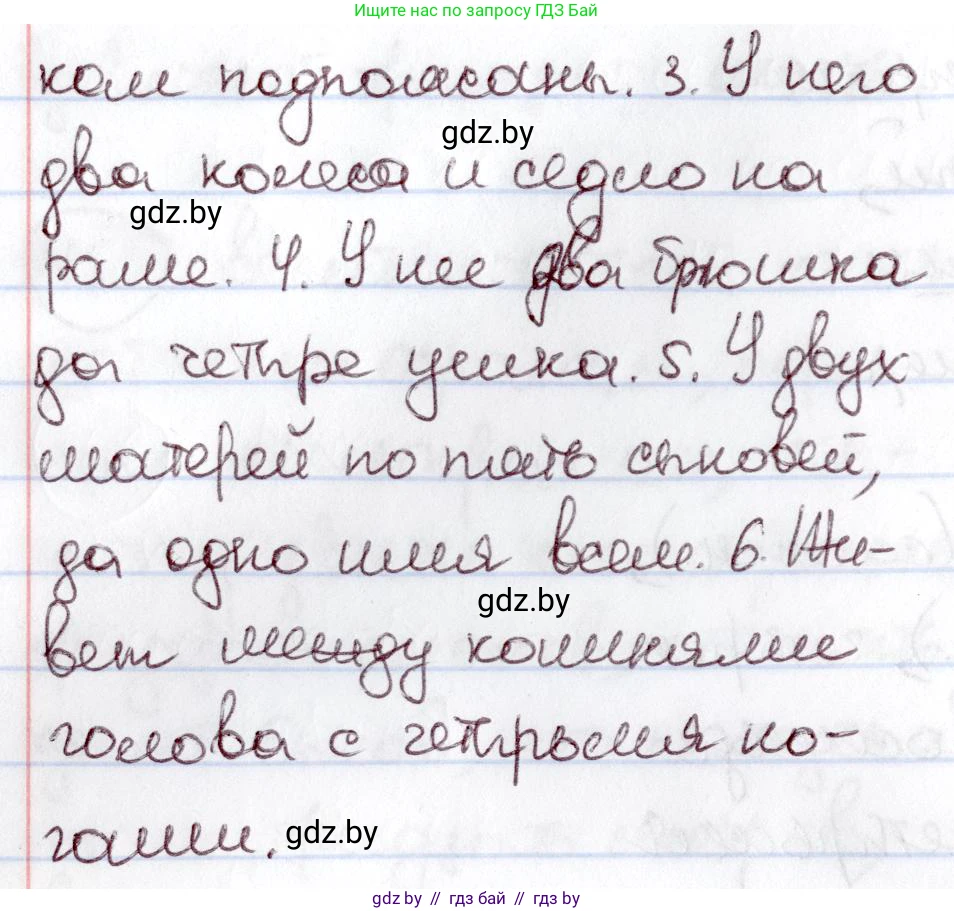 Ищите нас по запросу ГДЗ Бай
ком подпоясаны. 3. У него
gdz.by
два колеса и седло на
gdz.by
раме. 4. У нее два брюшка
да четыре ушка. 5. У двух
матерей по пять сыновей,
да одно имя всем. 6. Жи-
gdz.by
вет между камнями
голова с четырьмя но-
гами.
gdz.by
gdz.by // гдз бай // gdz.by